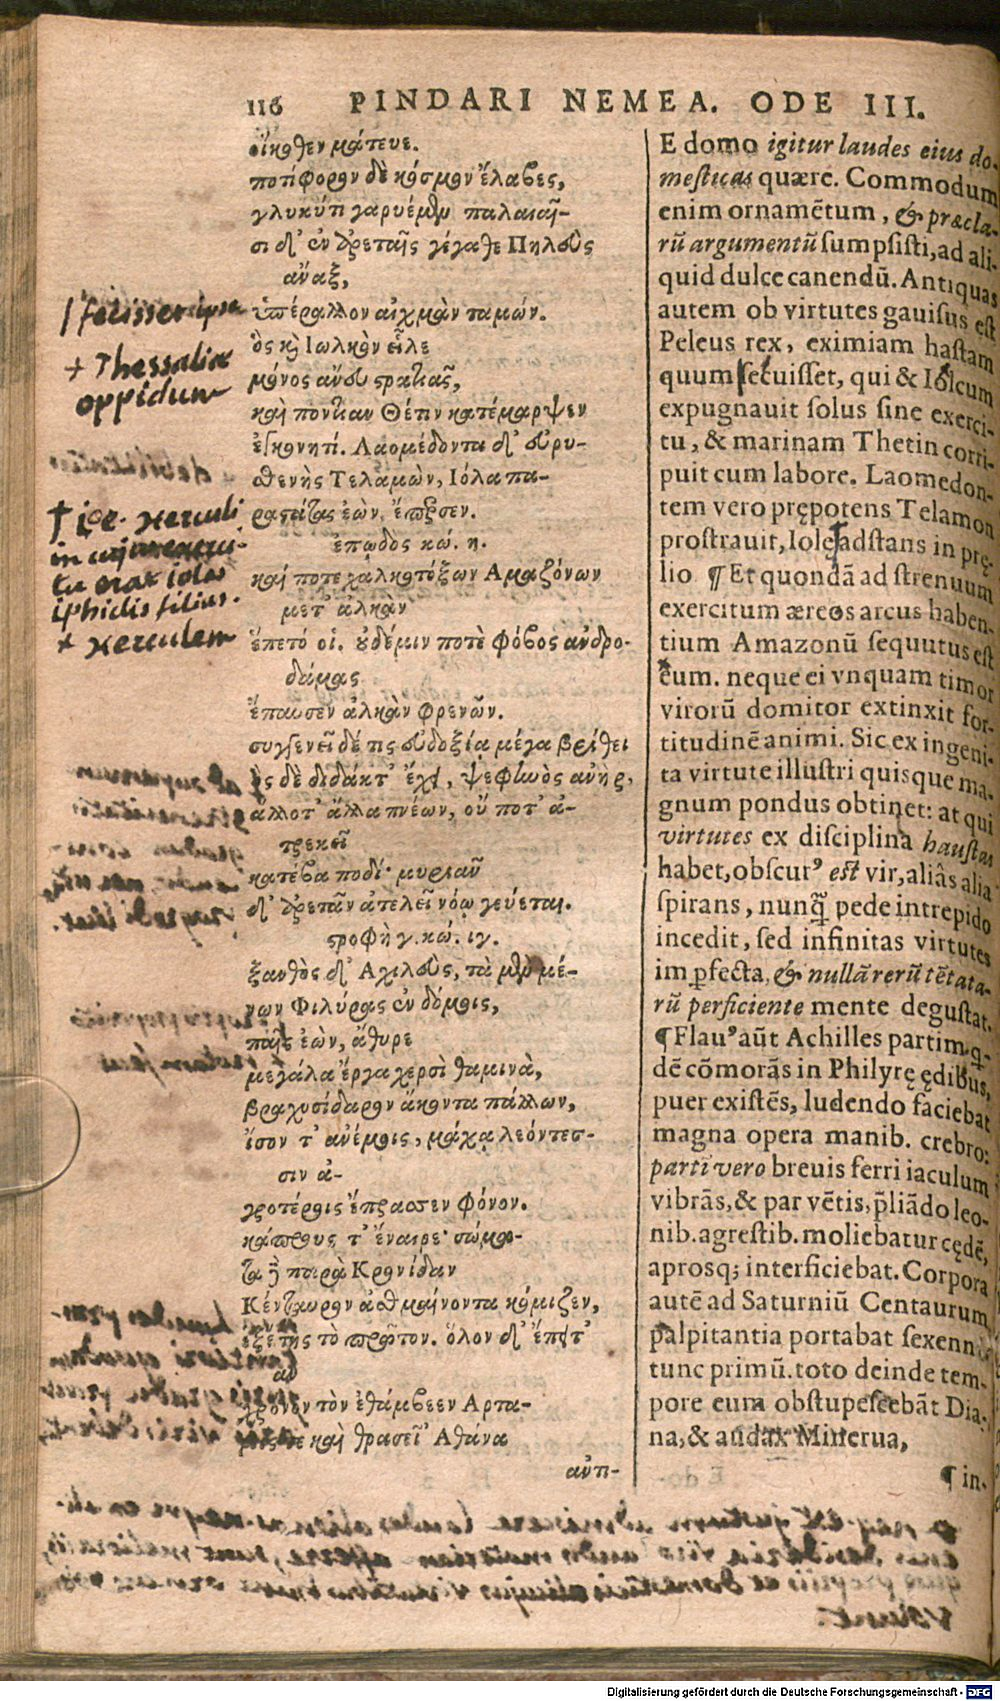 116 PINDARI NEMEA. ODE III.
οἴκοθεν μάτευε.
ποτίφορον δὲ κόσμον ἔλαβες,
γλυκύτι γαρυέμεν παλαιαῖ-
σι δ' ἐν ἀρεταῖς γέγαθε Πηλεὺς
ἄναξ,
ὑπέραλλον αἰχμὰν ταμών.
ὃς καὶ Ἰωλκὸν εἷλε
μόνος ἄνευ στρατιᾶς,
καὶ ποντίαν Θέτιν κατέμαρψεν
ἐγκονητί. Λαομέδοντα δ' εὐρυ-
σθενὴς Τελαμὼν, Ἰόλα πα-
ραστάτας ἐὼν, ἔπερσεν.
ἐπωδὸς κώ. η.
καί ποτε χαλκοτόξων Ἀμαζόνων
μετ' ἀλκὰν
ἕπετό οἱ. οὐδέμιν ποτὲ φόβος ἀνδρο-
δάμας
ἔπαυσεν ἀλκὰν φρενῶν.
συγγενεῖ δέ τις εὐδοξίᾳ μέγα βρίθει
ὃς δὲ διδάκτ' ἔχει, ψεφινὸς ἀνὴρ,
ἄλλοτ' ἄλλα πνέων, οὔ ποτ' ἀ-
τρεκεῖ
κατέβα ποδί· μυριᾶν
δ' ἀρετᾶν ἀτελεῖ νόῳ γεύεται.
στροφὴ γ. κώ. ιγ.
ξανθὸς δ' Ἀχιλεὺς, τὰ μὲν μέ-
νων Φιλύρας ἐν δόμοις,
παῖς ἐὼν, ἄθυρε
μεγάλα ἔργα χερσὶ θαμινὰ,
βραχυσίδαρον ἄκοντα πάλλων,
ἴσον τ' ἀνέμοις, μάχᾳ λεόντεσ-
σιν ἀ-
γροτέροις ἔπρασσεν φόνον.
κάπρους τ' ἔναιρε· σώμα-
τα ἢ παρὰ Κρονίδαν
Κένταυρον ἀσθμαίνοντα κόμιζεν,
ἑξέτης τὸ πρῶτον. ὅλον δ' ἔπειτ'
ἂν
χρόνον τὸν ἐθάμβεεν Ἄρτα-
μίς τε καὶ θρασεῖ' Ἀθάνα
αὖτι-
E domo igitur laudes eius do-
mesticas quære. Commodum
enim ornamētum, & præcla-
rū argumentū sumpsisti, ad ali-
quid dulce canendū. Antiquas
autem ob virtutes gauisus est
Peleus rex, eximiam hastam
quum secuisset, qui & Iolcum
expugnauit solus sine exerci-
tu, & marinam Thetin corri-
puit cum labore. Laomedon-
tem vero prępotens Telamon
prostrauit, Iolę adstans in prę-
lio ¶ Et quondā ad strenuum
exercitum æreos arcus haben-
tium Amazonū sequutus est
eum. neque ei vnquam timor
virorū domitor extinxit for-
titudinē animi. Sic ex ingeni-
ta virtute illustri quisque ma-
gnum pondus obtinet: at qui
virtutes ex disciplina haustas
habet, obscur⁹ est vir, aliâs alia
spirans, nunq̃ pede intrepido
incedit, sed infinitas virtutes
imꝑfecta, & nullā rerū tētata-
rū perficiente mente degustat.
¶ Flau⁹ aūt Achilles partim q-
dē cōmorās in Philyrę ędibus,
puer existēs, ludendo faciebat
magna opera manib. crebro:
parti vero breuis ferri iaculum
vibrās, & par vētis, p̄liādo leo-
nib. agrestib. moliebatur cędē,
aprosq; interficiebat. Corpora
autē ad Saturniū Centaurum
palpitantia portabat sexennis
tunc primū. toto deinde tem-
pore eum obstupescebāt Dia-
na, & audax Minerua,
¶ in-
fecisset ipse
+ Thessaliæ
oppidum
† i.e. Herculi
iphidis filius.
+ Herculem
Digitalisierung gefördert durch die Deutsche Forschungsgemeinschaft - DFG